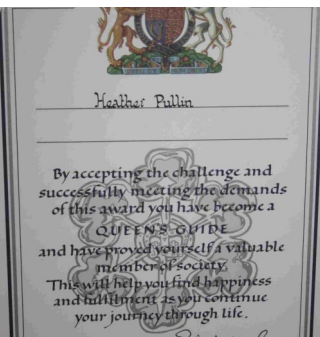 Heather Pullin
By accepting the challenge and
successfully meeting the demands
of this award you have become a
QUEEN'S GUIDE
and have proved yourself a valuable
member of society.
This will help you find happiness
and fulfilment as you continue
your journey through life.